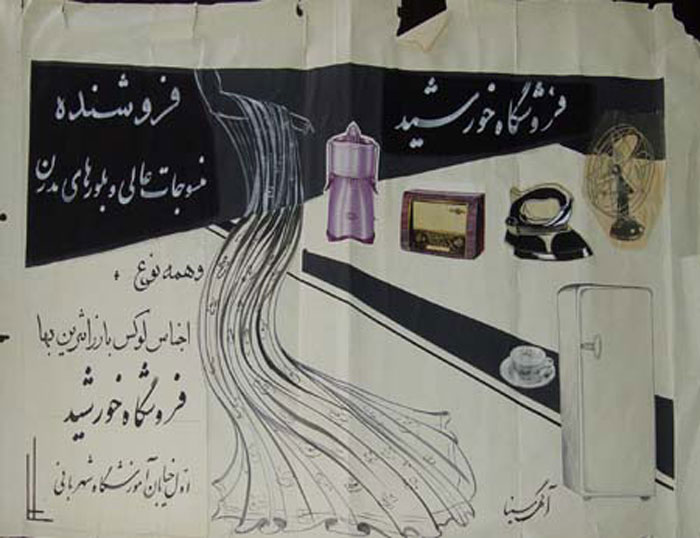 فروشگاه خورشید
فروشنده
منسوجات عالی و بلورهای مدرن
و همه نوع
اجناس لوکس بارزانترین بها
فروشگاه خورشید
اول خیابان آموزشگاه شهربانی
آگهی سینا